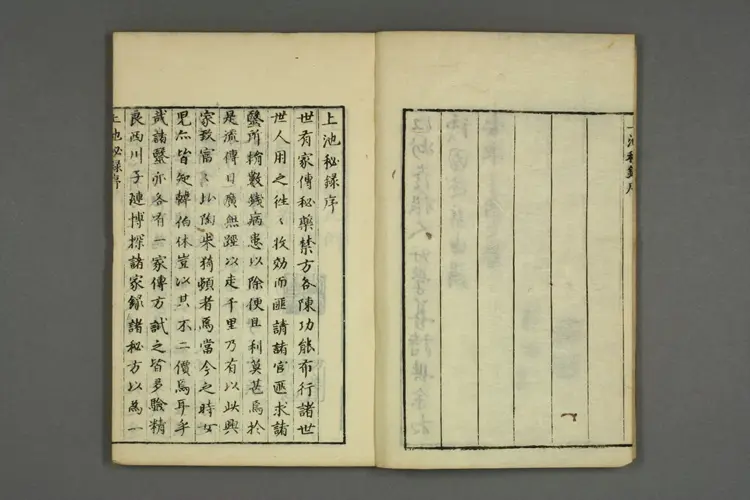 上池秘録序
上池秘録序
世有家傳秘藥禁方各陳功能布行諸世
世人用之往〻收効而匪請諸官匪求諸
醫所輸數錢病患以除便且利莫甚焉於
是流傳日廣無踁以走千里乃有以此興
家致富以比陶朱猗頓者焉當今之時女
児亦皆知韓伯休豈以其不二價焉耳乎
哉諸醫亦各有一家傳方試之皆多驗精
良西川子璉博探諸家録諸秘方以為一
上池秘録序